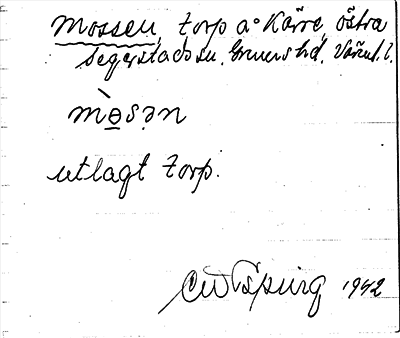 Mossen, torp å Kärre, östra
Segerstads sn, Gruers hd, Värml. l.
mo̱s.ən
utlagt torp.
1942